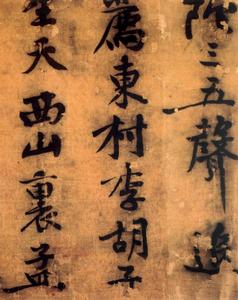 三五聲
東村李胡子
天西山裏孟